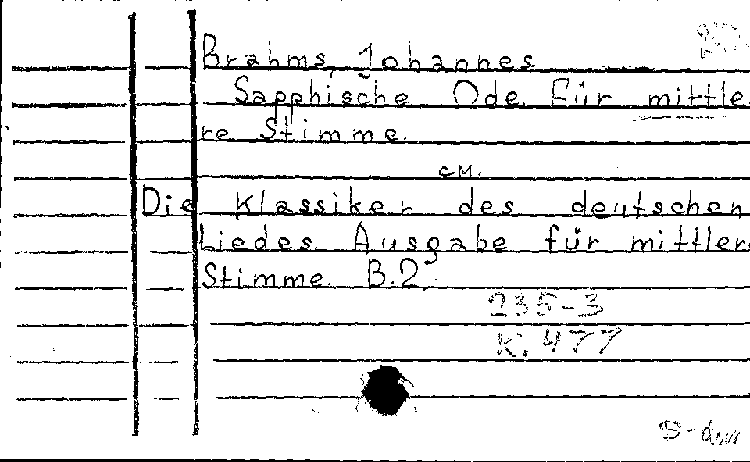 Brahms, Johannes
Sapphische Ode. Für mittle
re Stimme.
см.
Die Klassiker des deutschen
Liedes. Ausgabe für mittlere
Stimme. B.2.
235-3
К. 477